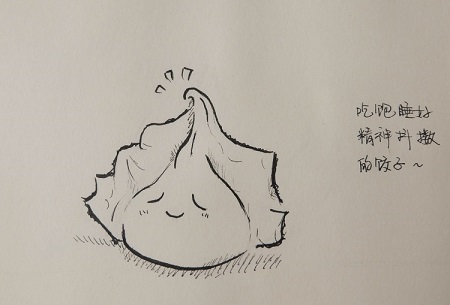 吃饱睡好
精神抖擞
的饺子~